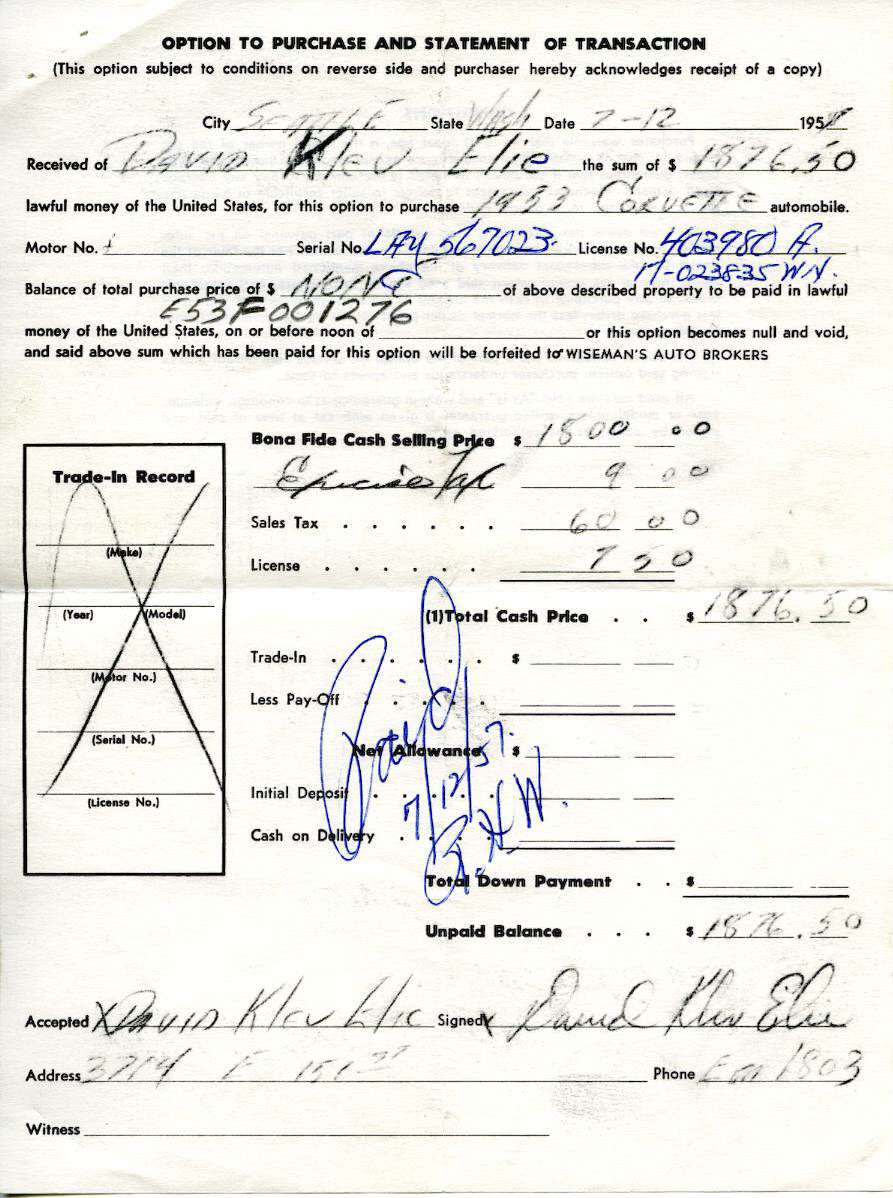 OPTION TO PURCHASE AND STATEMENT OF TRANSACTION
(This option subject to conditions on reverse side and purchaser hereby acknowledges receipt of a copy)
City SEATTLE State Wash Date 7-12 1957
Received of DAVID Klev Elie the sum of $ 1876.50
lawful money of the United States, for this option to purchase 1953 CORVETTE automobile.
Motor No. Serial No. LAY 567023 License No. 403980 A.
17-023835 WN.
Balance of total purchase price of $ NONE of above described property to be paid in lawful
E53F001276
money of the United States, on or before noon of or this option becomes null and void,
and said above sum which has been paid for this option will be forfeited to WISEMAN'S AUTO BROKERS
Bona Fide Cash Selling Price $ 1800 00
Trade-In Record
Excise Tax 9 00
Sales Tax . . . . . . 60 00
(Make)
License . . . . . . 7 50
(Year) (Model)
(1)Total Cash Price . . $ 1876.50
Trade-In . . . . . $
(Motor No.)
Less Pay-Off . . . . .
(Serial No.)
Net Allowance $
Paid
7/12/57.
R.H.W.
Initial Deposit . . . .
(License No.)
Cash on Delivery . . . .
Total Down Payment . . $
Unpaid Balance . . . $ 1876.50
Accepted X DAVID Klev Elie Signed X David Klev Elie
Address 3714 E 151 ST Phone Em 1803
Witness